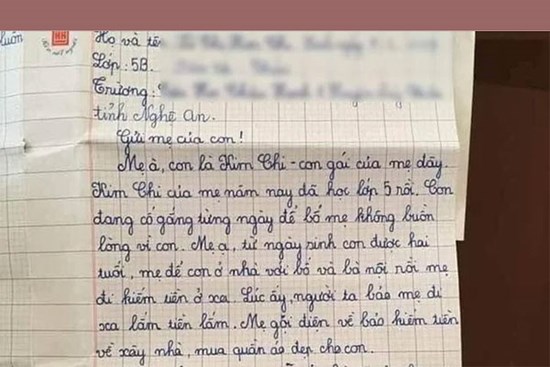 luôn
Họ và tên
Lớp: 5B.
Trường:
tỉnh Nghệ An.
Gửi mẹ của con!
Mẹ à, con là Kim Chi - con gái của mẹ đây.
Kim Chi của mẹ năm nay đã học lớp 5 rồi. Con
đang cố gắng từng ngày để bố mẹ không buồn
lòng vì con. Mẹ ạ, từ ngày sinh con được hai
tuổi, mẹ để con ở nhà với bố và bà nội rồi mẹ
đi kiếm tiền ở xa. Lúc ấy, người ta bảo mẹ đi
xa lắm tiền lắm. Mẹ gọi điện về bảo kiếm tiền
về xây nhà, mua quần áo đẹp cho con.